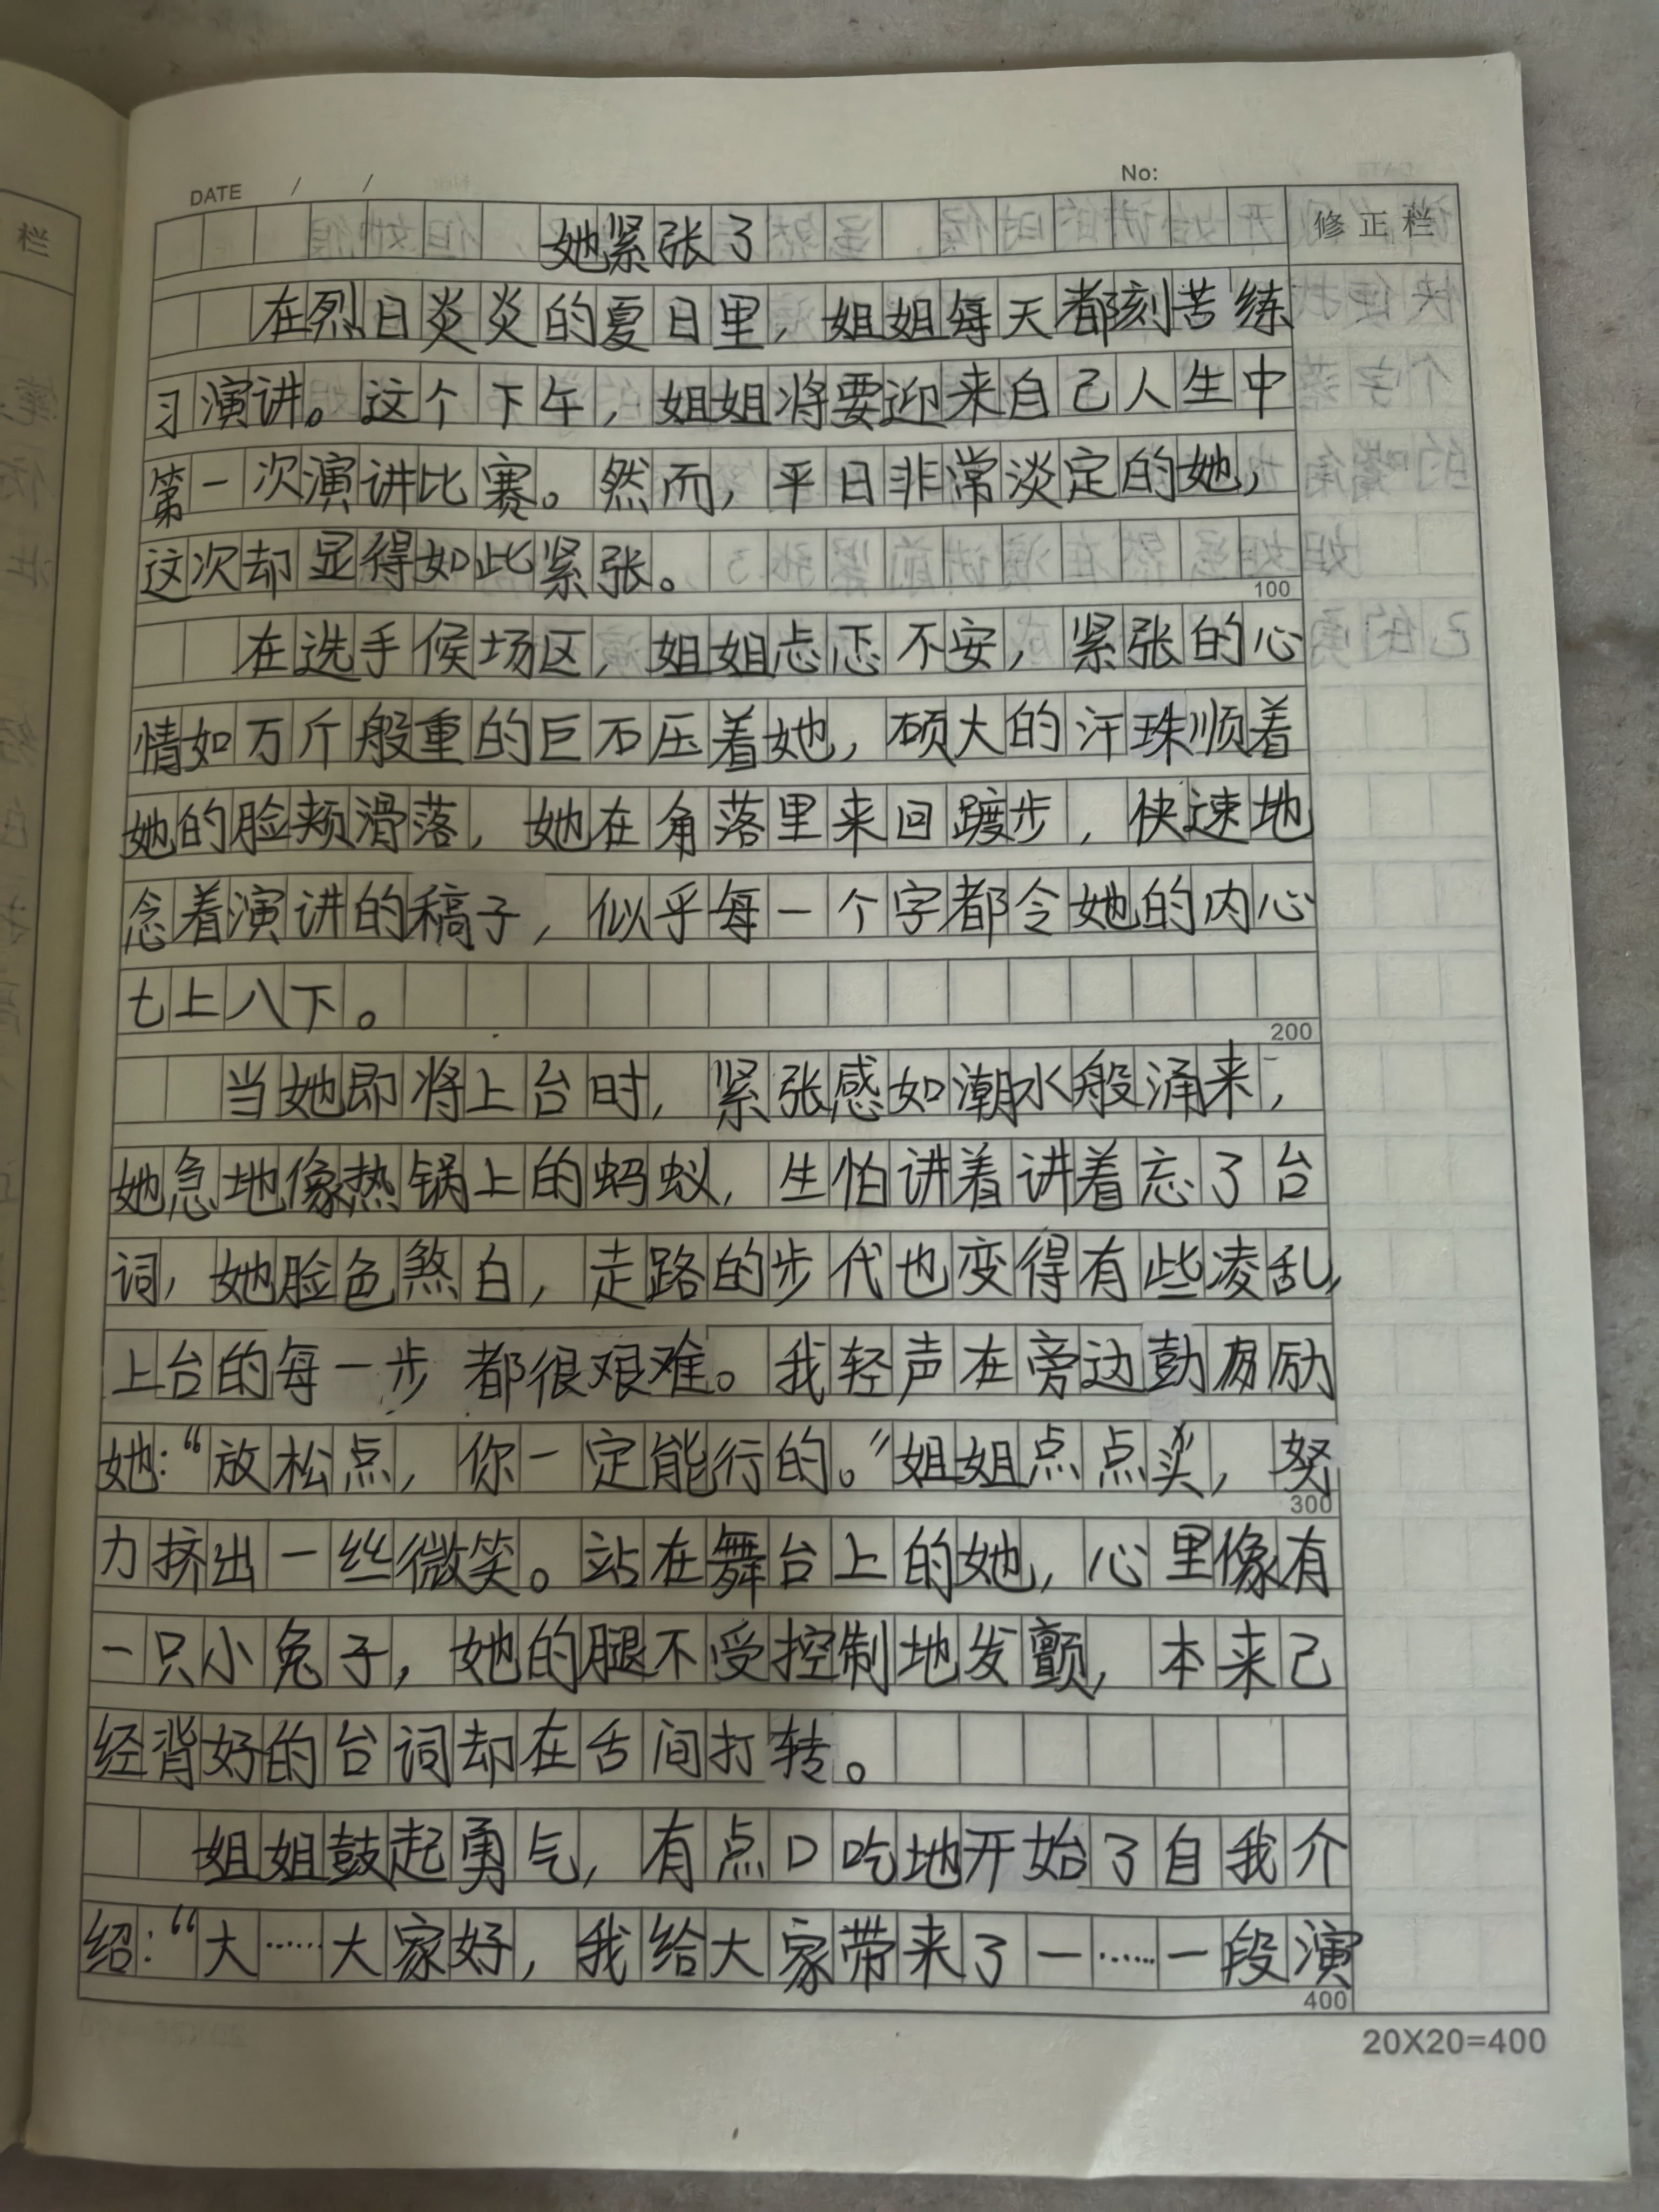 DATE / / No:
她紧张了 修正栏
在烈日炎炎的夏日里，姐姐每天都刻苦练
习演讲。这个下午，姐姐将要迎来自己人生中
第一次演讲比赛。然而，平日非常淡定的她，
这次却显得如此紧张。
100
在选手候场区，姐姐忐忑不安，紧张的心
情如万斤般重的巨石压着她，硕大的汗珠顺着
她的脸颊滑落，她在角落里来回踱步，快速地
念着演讲的稿子，似乎每一个字都令她的内心
七上八下。
200
当她即将上台时，紧张感如潮水般涌来，
她急地像热锅上的蚂蚁，生怕讲着讲着忘了台
词，她脸色煞白，走路的步代也变得有些凌乱，
上台的每一步都很艰难。我轻声在旁边鼓励
她：“放松点，你一定能行的。”姐姐点点头，努
300
力挤出一丝微笑。站在舞台上的她，心里像有
一只小兔子，她的腿不受控制地发颤，本来已
经背好的台词却在舌间打转。
姐姐鼓起勇气，有点口吃地开始了自我介
绍：“大……大家好，我给大家带来了一……一段演
400
20X20=400
栏